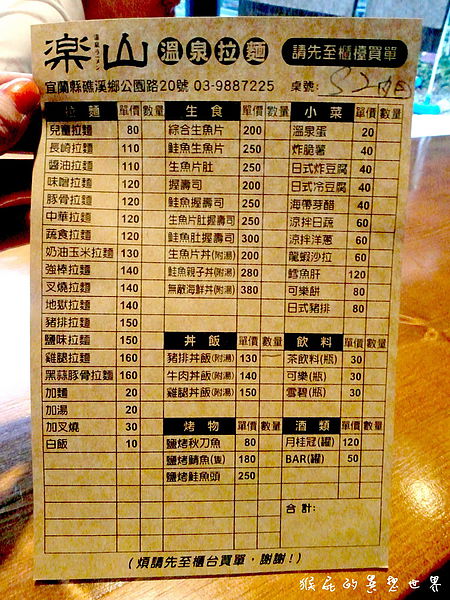 楽山 溫泉拉麵 請先至櫃檯買單
宜蘭縣礁溪鄉公園路20號 03-9887225 桌號:
拉麵 單價 數量
兒童拉麵 80
長崎拉麵 110
醬油拉麵 110
味噌拉麵 120
豚骨拉麵 120
中華拉麵 120
蔬食拉麵 120
奶油玉米拉麵 130
強棒拉麵 140
叉燒拉麵 140
地獄拉麵 140
豬排拉麵 150
鹽味拉麵 150
雞腿拉麵 160
黑蒜豚骨拉麵 160
加麵 20
加湯 20
加叉燒 30
白飯 10
生食 單價 數量
綜合生魚片 200
鮭魚生魚片 250
生魚片肚 250
握壽司 200
鮭魚握壽司 250
生魚片肚握壽司 250
鮭魚肚握壽司 300
生魚片丼(附湯) 200
鮭魚親子丼(附湯) 280
無敵海鮮丼(附湯) 380
丼飯 單價 數量
豬排丼飯(附湯) 130
牛肉丼飯(附湯) 140
雞腿丼飯(附湯) 150
烤物 單價 數量
鹽烤秋刀魚 80
鹽烤鯖魚(隻) 180
鹽烤鮭魚頭 250
小菜 單價 數量
溫泉蛋 20
炸脆薯 40
日式炸豆腐 40
日式冷豆腐 40
海帶芽醋 40
涼拌日蔬 60
涼拌洋蔥 60
龍蝦沙拉 60
鱈魚肝 120
可樂餅 80
日式豬排 80
飲料 單價 數量
茶飲料(瓶) 30
可樂(瓶) 30
雪碧(瓶) 30
酒類 單價 數量
月桂冠(罐) 120
BAR(罐) 50
合計:
(煩請先至櫃台買單,謝謝!)
猴屁的異想世界